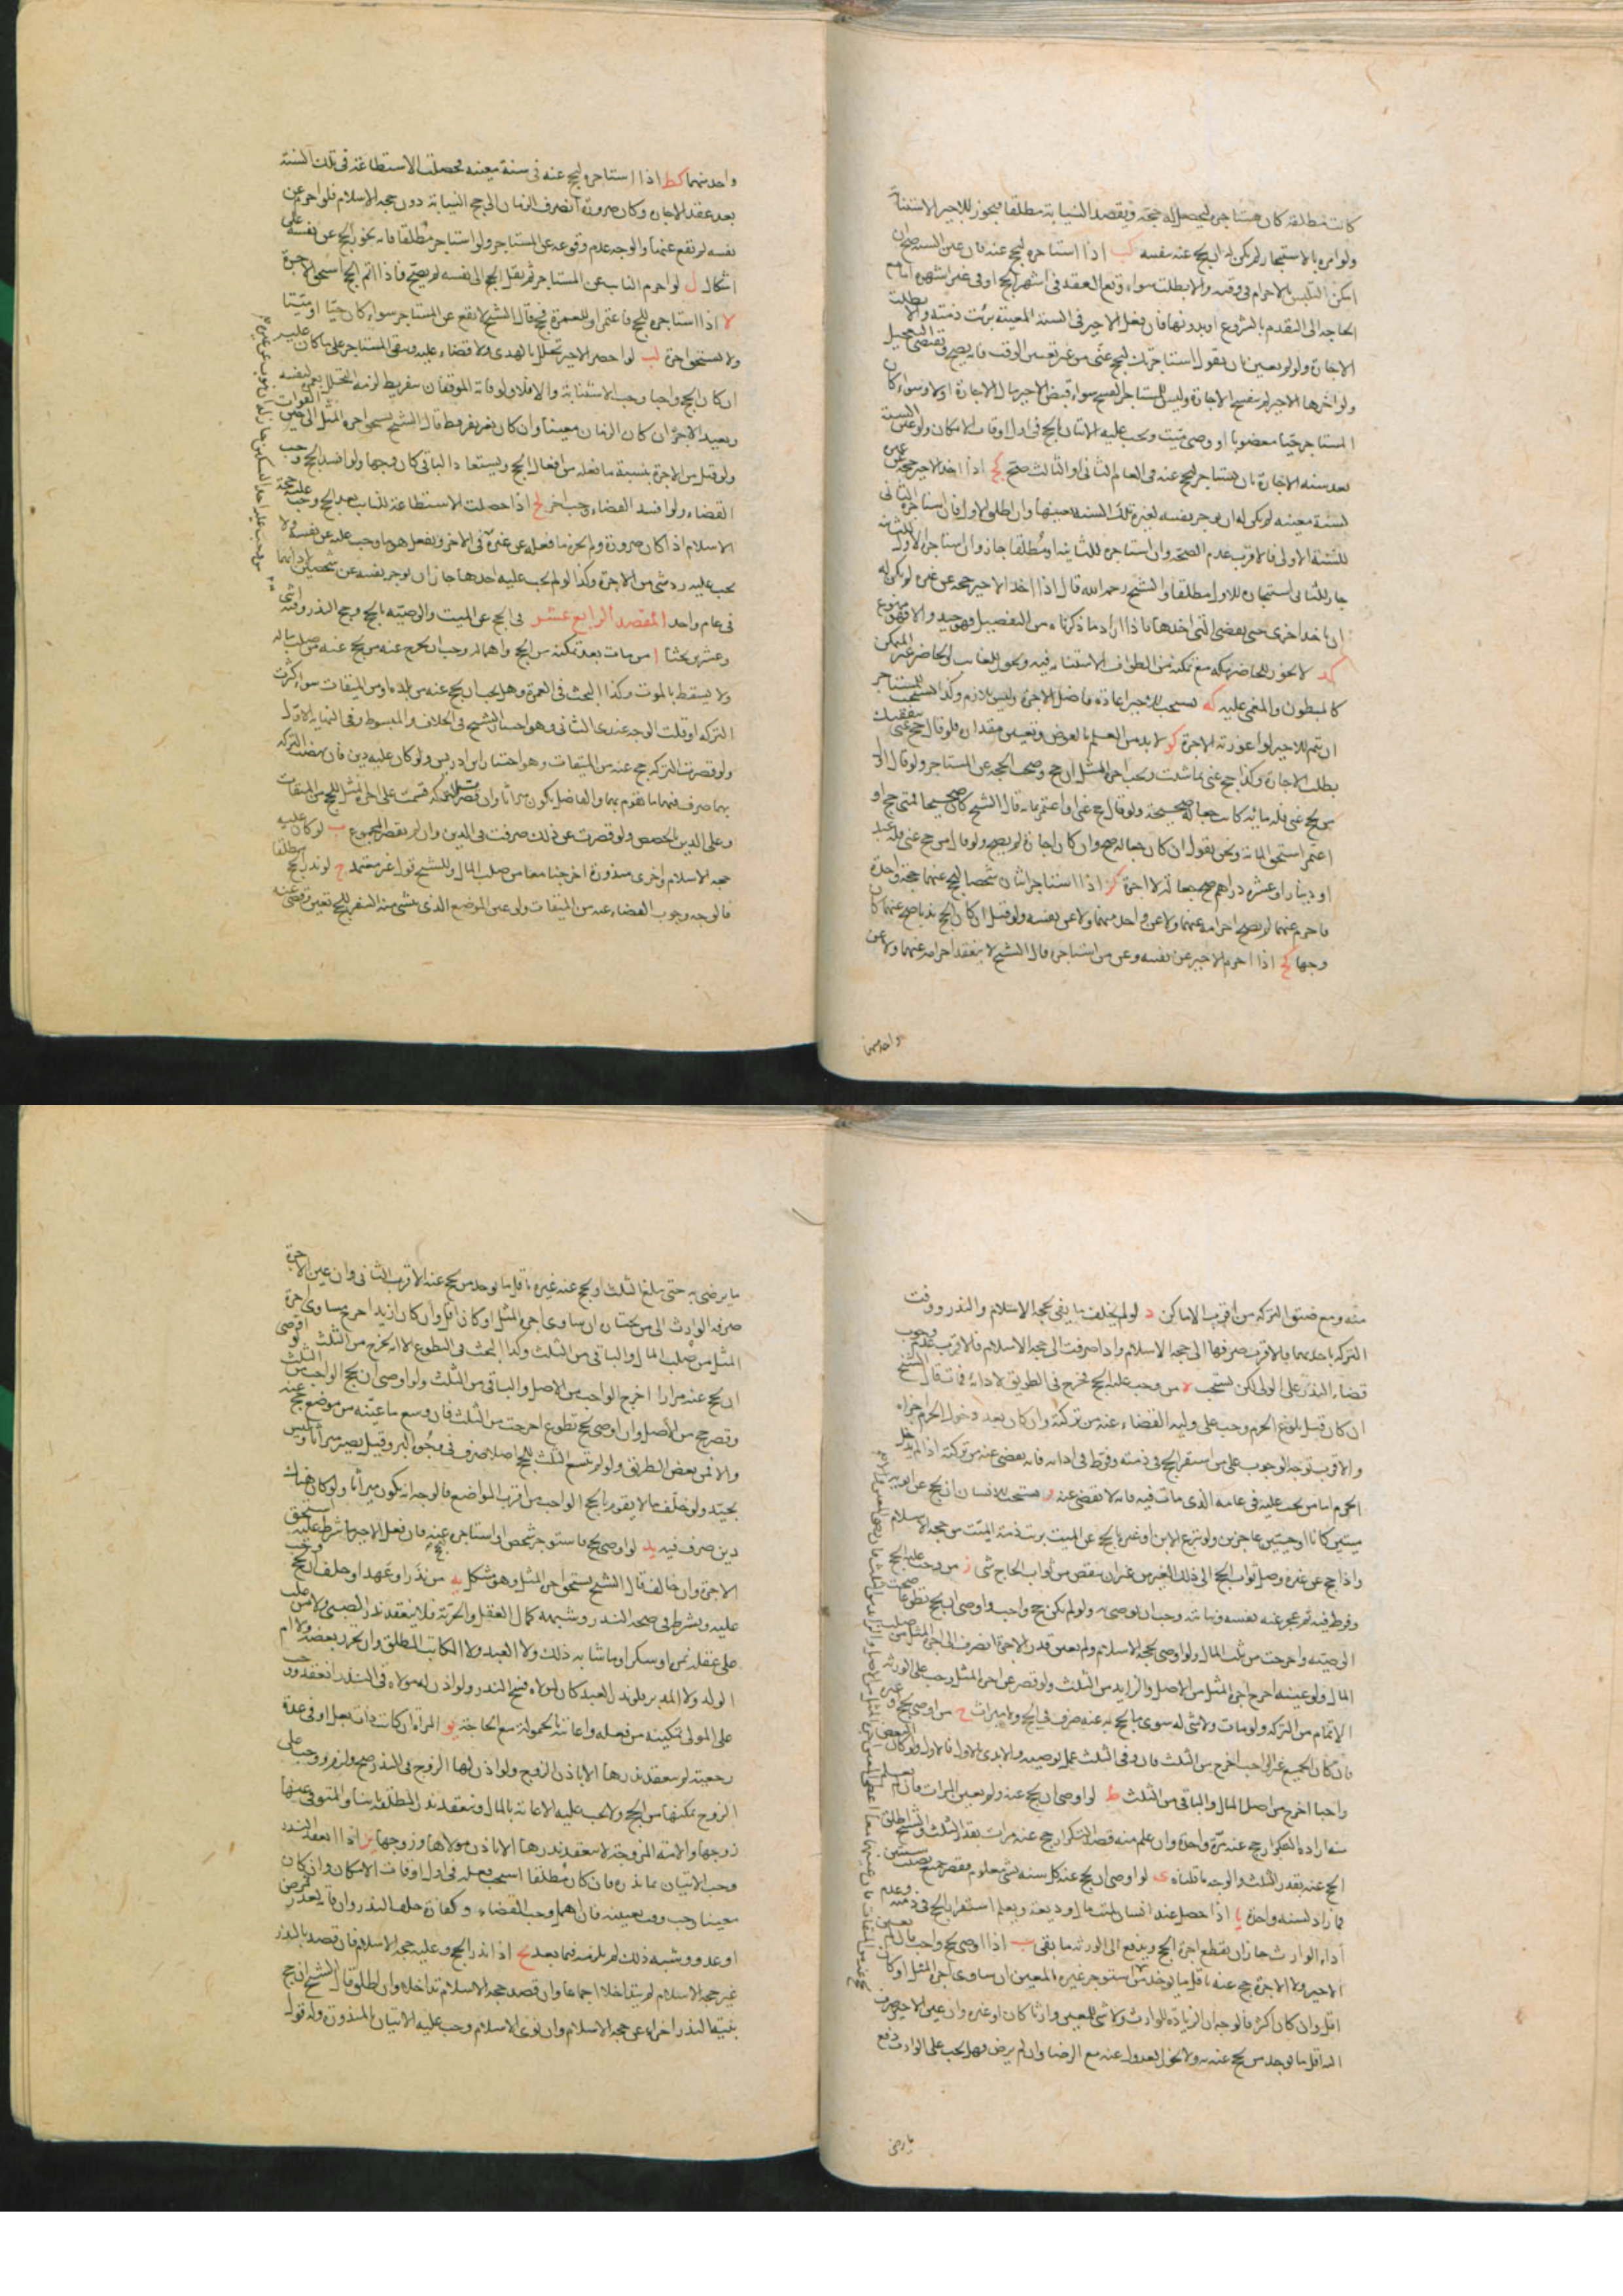 كانت مطلقة كان يستاجر ليحصل له حجة ويقصد النيابة مطلقا فيجوز للاجير الاستنابة
ولو امره بالاستيجار لم يكن له ان يحج عنه بنفسه كب اذا استاجره ليحج عنه فان عين السنة صح ان
امكن التلبس بالاحرام في وقته والا بطلت سواء وقع العقد في اشهر الحج او في غير اشهره امامع
الحاجه الى التقدم بالشروع او بدونها فان فعل الاجير في السنة المعينة برئت ذمته والا بطلت
الاجارة ولو لم يعين بان يقول استاجرتك لتحج عني من غير تعيين الوقت فانه يصح ويقتضى التعجيل
ولو اخرها الاجير لم تنفسخ الاجارة وليس للمستاجر الفسخ سواء قبض الاجير مال الاجارة اولا وسواء كان
المستاجر حيا معضوبا او وصى ميت ويجب عليه الاتيان بالحج في اول اوقات الامكان ولو عين السنة
بعد سنه الاجارة بان يستاجر ليحج عنه في العام الثاني او الثالث صح كج اذا اخذ الاجير حجة عن غيره
لسنة معينه لم يكن له ان يوجر نفسه لغيره تلك السنة بعينها وان اطلق الاول فان استاجره الثاني
للسنة الاولى فالاقرب عدم الصحة وان استاجره للثانية او مطلقا جاز وان استاجر الاول للثانية
جاز للثاني استيجاره للاول مطلقا والشيخ رحمه الله قال اذا اخذ الاجير حجة عن غيره لم يكن له
ان ياخذ اخرى حتى يقضى التي اخذها فاذا اراد ما ذكرناه من التفصيل فهو جيد والا فهو ممنوع
كد لا يجوز للحاضر بمكه مع تمكنه من الطواف الاستنابه فيه ويجوز للغايب والحاضر غير المتمكن
كالمبطون والمغمى عليه كه يستحب للاجير اعادة فاضل الاجرة وليس بلازم وكذا يستحب للمستاجر
ان يتم للاجير لو اعوزته الاجرة كو لابد من العلم بالعوض وتعيين مقداره فلو قال حج عني بنفقتك
بطلت الاجارة وكذا حج عني بما شئت ويجب اجرة المثل ان حج وصحت الحجة عن المستاجر ولو قال اول
من يحج عني فله مائة كانت جعالة صحيحة ولو قال حج عني او اعتمر بمائة قال الشيخ كان صحيحا فمتى حج او
اعتمر استحق المائة ونحن نقول ان كان جعاله صح وان كان اجارة لم يصح ولو قال من حج عني فله عبد
او دينار او عشره دراهم صح جعالة لا اجرة كز اذا استاجر اثنان شخصا ليحج عنهما حجة واحدة
فاحرم عنهما لم يصح احرامه عنهما ولا عن واحد منهما ولا عن نفسه ولو قيل ان كان الحج ندبا صح عنهما كان
وجها كح اذا احرم الاجير عن نفسه وعن من استاجره قال الشيخ لا ينعقد احرامه عنهما ولا عن
واحد منهما
واحد منهما كط اذا استاجره ليحج عنه في سنة معينه فحصلت الاستطاعة في تلك السنة
بعد عقد الاجارة وكان صرورة انصرف الزمان الى حج النيابة دون حجه الاسلام فلو احرم عن
نفسه لم تقع عنهما والوجه عدم وقوعه عن المستاجر ولو استاجر مطلقا فانه يجوز الحج عن نفسه على
اشكال ل لو احرم النايب عن المستاجر ثم نقل الحج الى نفسه لم يصح فاذا اتم الحج استحق الاجرة
لا اذا استاجره للحج فاعتمر او للعمرة فحج قال الشيخ لا تقع عن المستاجر سواء كان حيا او ميتا
ولا يستحق اجرة لب لو احصر الاجير تحلل بالهدى ولا قضاء عليه ويبقى المستاجر على ما كان عليه
ان كان الحج واجبا وجب الاستنابة والا فلا ولو فاته الموقفان بتفريط لزمه التحلل بعمرة لنفسه
ويعيد الاجرة ان كان الزمان معينا وان كان بغير تفريط قال الشيخ يستحق اجرة المثل الى حين الفوات
ولو قيل من الاجرة بنسبة ما فعله من افعال الحج ويستعاد الباقي كان وجها ولو افسد الحج وجب
القضاء ولو افسد القضاء وجب اخر لج اذا حصلت الاستطاعة للنايب بعد الحج وجب عليه حجة
الاسلام اذا كان صرورة ولم يجزه ما فعله عن غيره في الاخر ويفعل هو ما وجب عليه عن نفسه ولا
يجب عليه رد شي من الاجرة وكذا لو لم يجب عليه احدها جاز ان يوجر نفسه عن شخصين لادائهما
في عام واحد المقصد الرابع عشر في الحج عن الميت والوصيه بالحج وحج النذر وفيه اثنى
وعشرون بحثا ا من مات بعد تمكنه من الحج واهماله وجب ان يخرج عنه من يحج عنه من صلب ماله
ولا يسقط بالموت وكذا البحث في العمرة وهل يجب ان يحج عنه من بلده او من الميقات سواء كثرت
التركه او قلت الوجه عندى الثاني وهو احد اقوال الشيخ في الخلاف والمبسوط وفي النهاية الاول
ولو قصرت التركه حج عنه من الميقات وهو اختيار ابن ادريس ولو كان عليه دين فان نهضت التركة
بهما صرف فيهما ما يقوم بهما والفاضل يكون ميراثا وان قصرت التركه قسمت على اجرة المثل للحج من الميقات
وعلى الدين بالحصص ولو قصرت عن ذلك صرفت في الدين وان لم يقصر المجموع ب لو كان عليه
حجه الاسلام واخرى منذورة اخرجتا معا من صلب المال وللشيخ قول غير معتمد ج لو نذر الحج مطلقا
فالوجه وجوب القضاء عنه من الميقات ولو عين الموضع الذى ينشئ منه السفر للحج تعين وقضى عنه
منه ومع ضيق التركه من اقرب الاماكن د لو لم يخلف ما يفى بحجه الاسلام والنذر ووفت
التركه باحديهما فالاقرب صرفها الى حجه الاسلام واذا صرفت الى حجه الاسلام فالاقرب عدم وجوب
قضاء النذر على الولى لكن يستحب ه من وجب عليه الحج فخرج في الطريق لادائه فمات قال الشيخ
ان كان قبل بلوغ الحرم وجب على وليه القضاء عنه من تركته وان كان بعد دخول الحرم اجزاه
والاقرب توجه الوجوب على من استقر الحج في ذمته وفرط في ادائه فانه يقضى عنه من تركته اذا لم يدخل
الحرم اما من يجب عليه في عامه الذى مات فيه فانه لا يقضى عنه و يستحب للانسان ان يحج عن ابويه
ميتين كانا او حيين عاجزين ولو تبرع الابن او غيره بالحج عن الميت برئت ذمة الميت من حجه الاسلام
واذا حج عن غيره وصل ثواب الحج الى ذلك الغير من غير ان ينقص من ثواب الحاج شي ز من وجب عليه الحج
وفرط فيه ثم عجز عنه بنفسه وماله وجب ان يوصى به ولو لم يكن حج واجب واوصى ان يحج تطوعا صحت
الوصيه واخرجت من ثلث المال ولو اوصى بحجه الاسلام ولم يعين قدر الاجرة انصرف الى اجرة المثل من صلب
المال ولو عينه اخرج اجرة المثل من الاصل والزايد من الثلث ولو قصر عن اجرة المثل وجب على الورثه
الاتمام من التركه ولو مات ولا شي له سوى ما يحج به عنه صرف في الحج ولا ميراث ح من اوصى بحج وغيره
فان كان الجميع غير واجب اخرج من الثلث فان وفي الثلث عمل بوصيته والا بدى بالاول فالاول ولو كان البعض
واجبا اخرج من اصل المال والباقي من الثلث ط لو اوصى ان يحج عنه ولم يعين المرات فان لم يعلم
منه ارادة التكرار حج عنه مرة واحدة وان علم منه قصد التكرار حج عنه مرات بقدر الثلث والشيخ اطلق
الحج عنه بقدر الثلث والوجه ما قلناه ى لو اوصى ان يحج عنه كل سنه بشي معلوم فقصر جمع نصيب سنتين
فما زاد لسنه واحدة يا اذا حصل عند انسان لميت مال وديعة ويعلم استقرار الحج في ذمته وعدم
اداء الوارث جاز ان يقطع اجرة الحج ويدفع الى الورثه ما بقى يب اذا اوصى بحج واجب فان لم يعين
الاجير ولا الاجرة حج عنه باقل ما يوجد من يستوجر غيره والمعين ان ساوى اجرة المثل او كان
اقل وان كان اكثر فالوجه ان الزيادة للوارث ولا شي للمعين وارثا كان او غيره وان عين الاجير صرف
اليه اقل ما يوجد من يحج عنه به ولا يجوز العدول عنه مع الرضا وان لم يرض فهل يجب على الوارث دفع
ما يرضى
ما يرضى به حتى يبلغ الثلث او يحج عنه غيره باقل ما يوجد من يحج عنه الاقرب الثاني وان عين الاجرة
صرفه الوارث الى من يختار ان ساوى اجرة المثل او كان اقل وان كان ازيد اخرج مساوى اجرة
المثل من صلب المال والباقي من الثلث وكذا البحث في التطوع الا انه يخرج من الثلث ولو اوصى
ان يحج عنه مرارا اخرج الواجب من الاصل والباقي من الثلث ولو اوصى ان يحج الواجب من الثلث
وقصر حج من الاصل وان اوصى بحج تطوع اخرجت من الثلث فان وسع ما عينه من موضع حج عنه
والا فمن بعض الطريق ولو لم تسع الثلث للحج اصلا صرف في وجوه البر وقيل يصير ميراثا وليس
بجيد ولو خلف ما لا يقوم بالحج الواجب من اقرب المواضع فالوجه انه يكون ميراثا ولو كان هناك
دين صرف فيه يد لو اوصى بحج فاستوجر شخص او استاجره ليحج عنه فان فعل الاجير ما شرط عليه استحق
الاجرة وان خالف قال الشيخ يستحق اجرة المثل وهو مشكل يه من نذر او عهد او حلف ان يحج وجب
عليه ويشترط في صحة النذر وشبهه كمال العقل والحرية فلا ينعقد نذر الصبى ولا من غلب
على عقله بمرض او سكر او ما شابه ذلك ولا العبد ولا المكاتب المطلق وان تحرر بعضه ولا ام
الولد ولا المدبر فلو نذر العبد كان لمولاه فسخ النذر ولو اذن له مولاه في النذر انعقد ووجب
على المولى تمكينه من فعله واعانته بالحمولة مع الحاجة يو المراة ان كانت ذات بعل او في عدة
رجعية لم ينعقد نذرها الا باذن الزوج ولو اذن لها الزوج في النذر صح ولزم ووجب على
الزوج تمكينها من الحج ولا يجب عليه الاعانة بالمال وينعقد نذر المطلقة باينا والمتوفى عنها
زوجها والامة المزوجة لا ينعقد نذرها الا باذن مولاها وزوجها يز اذا انعقد النذر
وجب الاتيان بما نذره فان كان مطلقا استحب فعله في اول اوقات الامكان وان كان
معينا وجب وقت تعيينه فان اهمل وجب القضاء وكفارة خلف النذر وان فاته بعذر كمرض
او عدو وشبه ذلك لم يلزمه فيما بعد يح اذا نذر الحج وعليه حجه الاسلام فان قصد بالنذر
غير حجه الاسلام لم يتداخلا اجماعا وان قصد حجه الاسلام تداخلا وان اطلق قال الشيخ ان حج
بنية النذر اجزاه عن حجه الاسلام وان نوى الاسلام وجب عليه الاتيان بالمنذورة وله قول